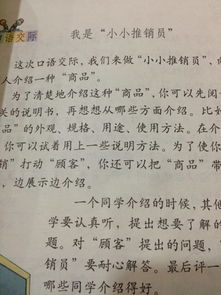 口语交际
我是“小小推销员”
这次口语交际，我们来做“小小推销员”，向
人介绍一种“商品”。
为了清楚地介绍这种“商品”，你可以先阅
关的说明书，再想想从哪些方面介绍。比如
品”的外观、规格、用途、使用方法。在介
你可以试着用上一些说明方法。为了使你
销”打动“顾客”，你还可以把“商品”带
，边展示边介绍。
一个同学介绍的时候，其他
学要认真听，提出想要了解的
题。对“顾客”提出的问题，
销员”要耐心解答。最后评一
哪些同学介绍得好。